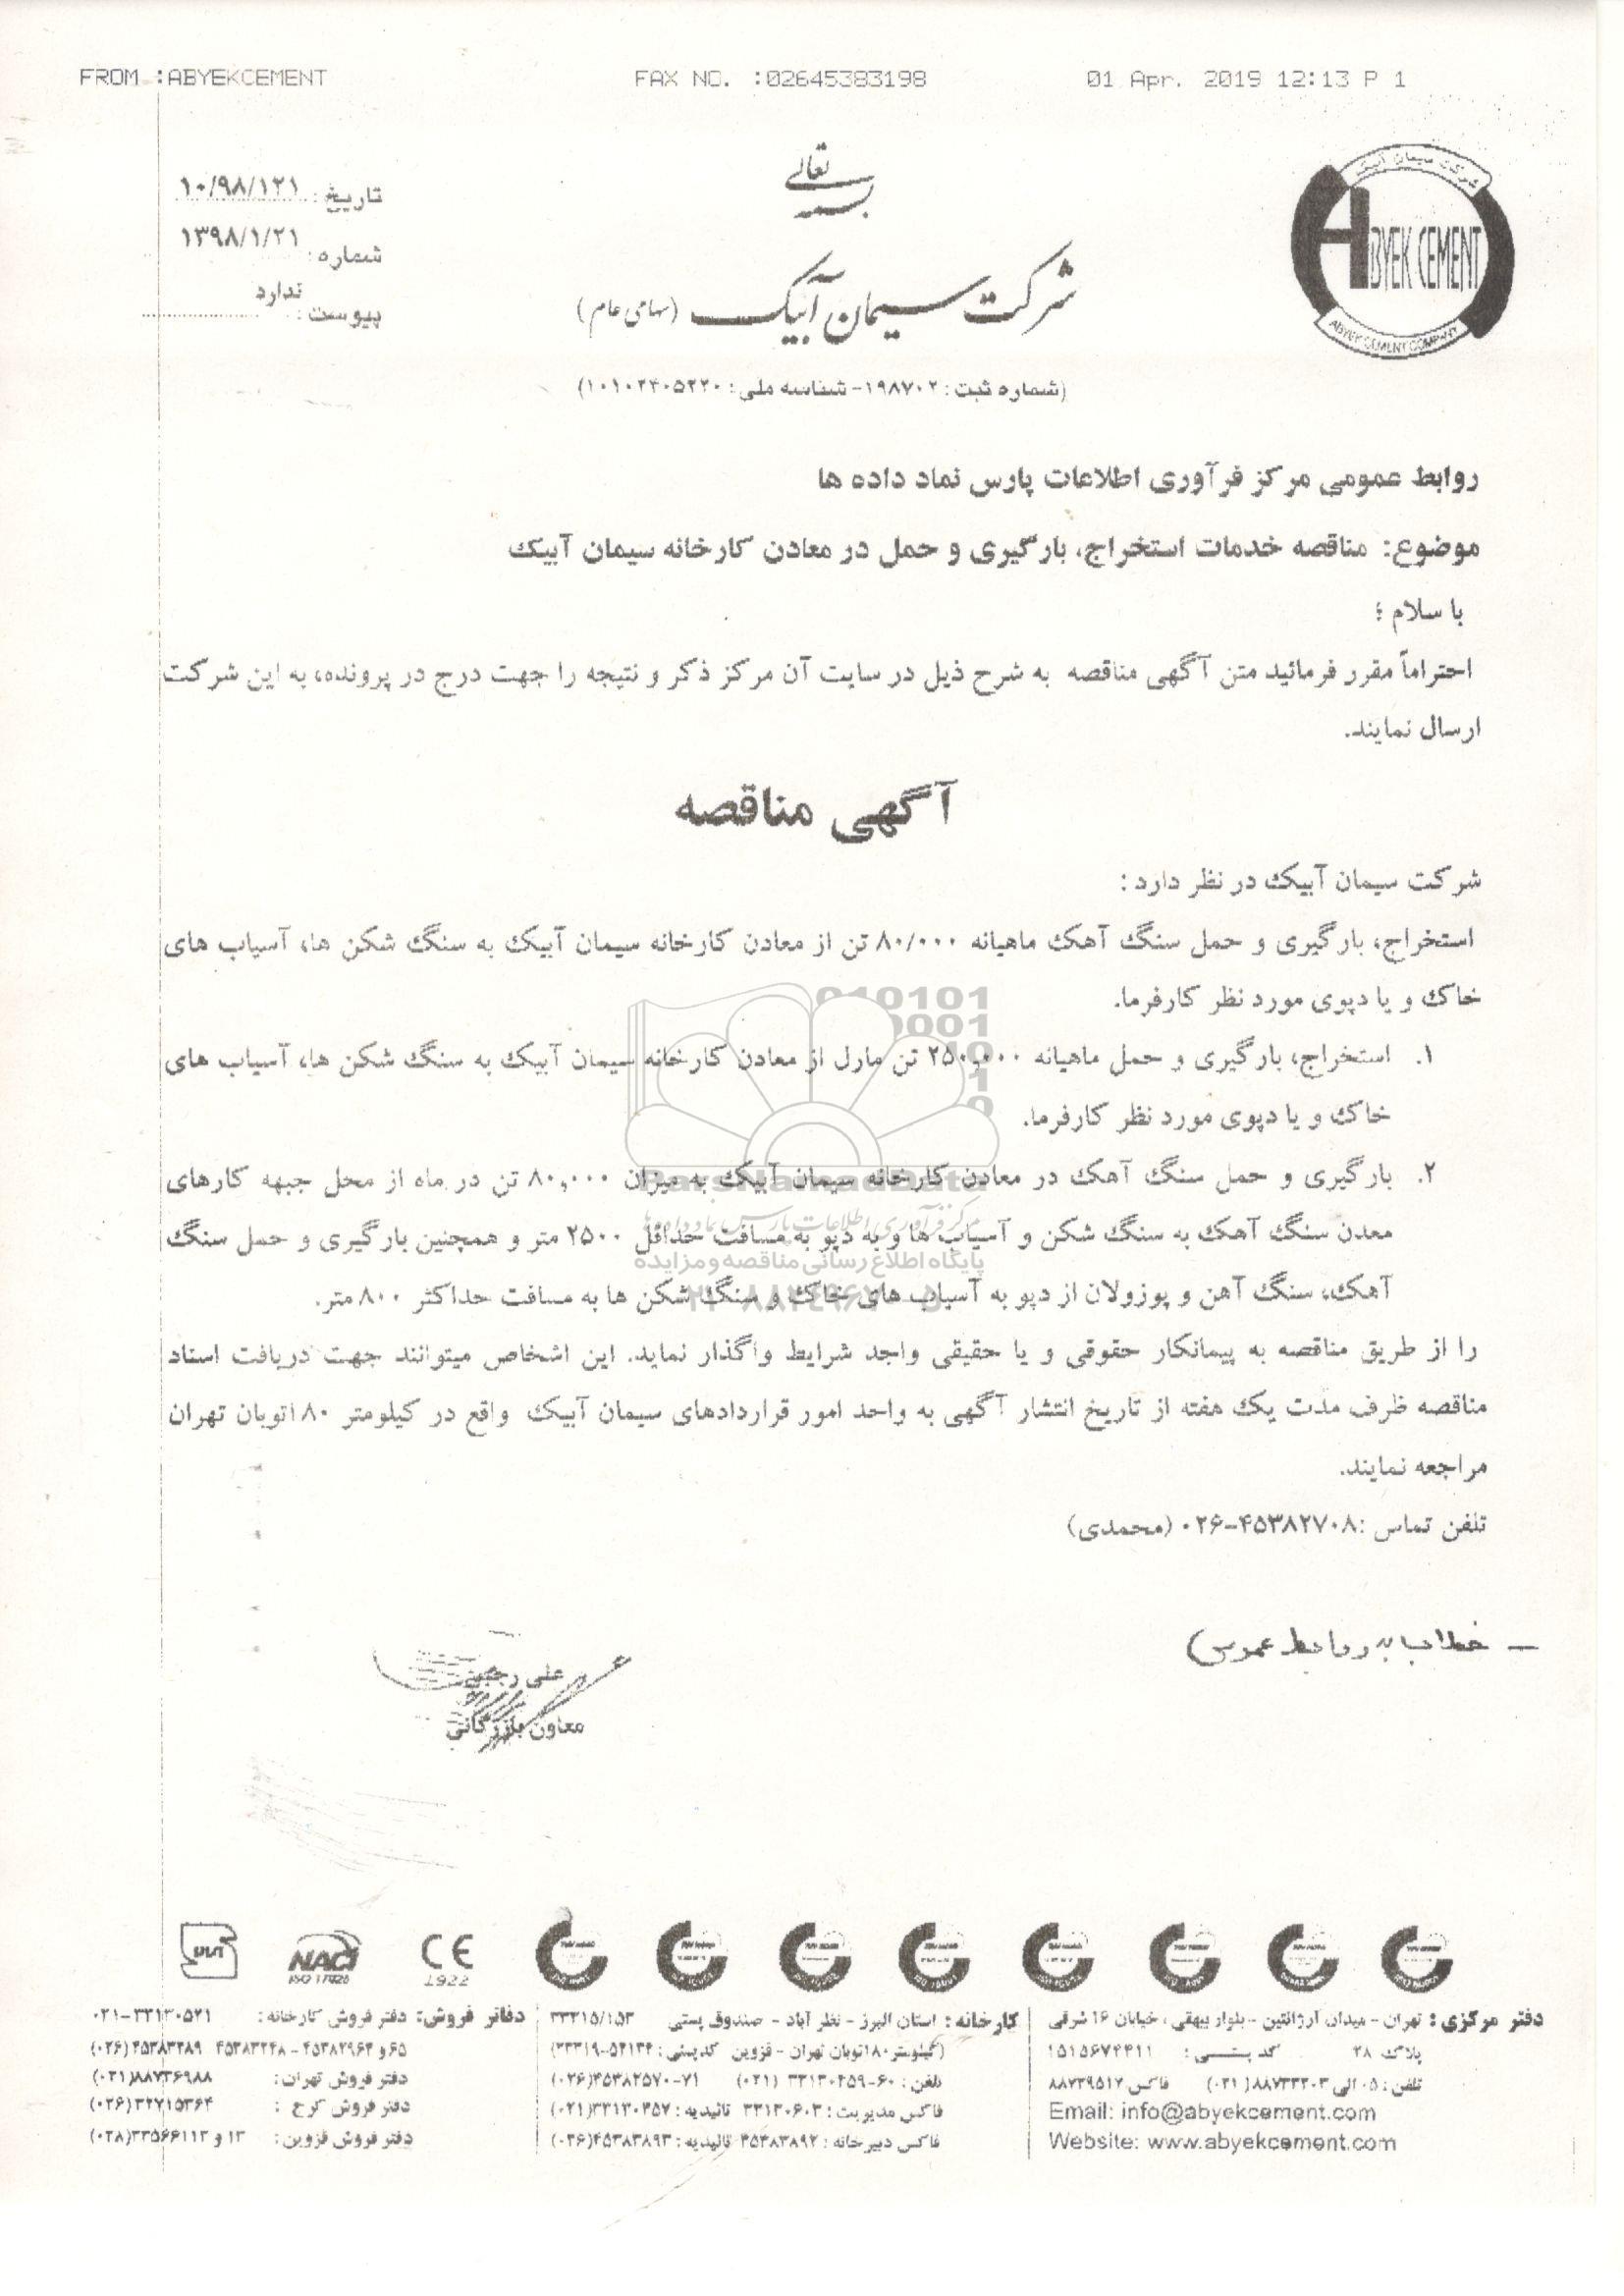 FROM :ABYEKCEMENT FAX NO. :02645383198 01 Apr. 2019 12:13 P 1
بسمه تعالی
شرکت سیمان آبیک (سهامی عام)
(شماره ثبت : ۱۹۸۷۰۲- شناسه ملی : ۱۰۱۰۲۴۰۵۲۲۰)
تاریخ : ۱۰/۹۸/۱۲۱
شماره : ۱۳۹۸/۱/۲۱
پیوست : ندارد
شرکت سیمان آبیک
ABYEK CEMENT
ABYEK CEMENT COMPANY
روابط عمومی مرکز فرآوری اطلاعات پارس نماد داده ها
موضوع: مناقصه خدمات استخراج، بارگیری و حمل در معادن کارخانه سیمان آبیک
با سلام ؛
احتراماً مقرر فرمائید متن آگهی مناقصه به شرح ذیل در سایت آن مرکز ذکر و نتیجه را جهت درج در پرونده، به این شرکت
ارسال نمایند.
آگهی مناقصه
شرکت سیمان آبیک در نظر دارد :
استخراج، بارگیری و حمل سنگ آهک ماهیانه ۸۰/۰۰۰ تن از معادن کارخانه سیمان آبیک به سنگ شکن ها، آسیاب های
خاک و یا دپوی مورد نظر کارفرما.
۱. استخراج، بارگیری و حمل ماهیانه ۲۵۰,۰۰۰ تن مارل از معادن کارخانه سیمان آبیک به سنگ شکن ها، آسیاب های
خاک و یا دپوی مورد نظر کارفرما.
۲. بارگیری و حمل سنگ آهک در معادن کارخانه سیمان آبیک به میزان ۸۰,۰۰۰ تن در ماه از محل جبهه کارهای
معدن سنگ آهک به سنگ شکن و آسیاب ها و به دپو به مسافت حداقل ۲۵۰۰ متر و همچنین بارگیری و حمل سنگ
آهک، سنگ آهن و پوزولان از دپو به آسیاب های خاک و سنگ شکن ها به مسافت حداکثر ۸۰۰ متر.
را از طریق مناقصه به پیمانکار حقوقی و یا حقیقی واجد شرایط واگذار نماید. این اشخاص میتوانند جهت دریافت اسناد
مناقصه ظرف مدت یک هفته از تاریخ انتشار آگهی به واحد امور قراردادهای سیمان آبیک واقع در کیلومتر ۸۰ اتوبان تهران
مراجعه نمایند.
تلفن تماس :۴۵۳۸۲۷۰۸-۰۲۶ (محمدی)
ParsNamadData
مرکز فرآوری اطلاعات پارس نماد داده ها
پایگاه اطلاع رسانی مناقصه و مزایده
– خطاب به روابط عمومی
علی رجبی
معاون بازرگانی
NACI
ISO 17025
CE
1922
دفتر مرکزی : تهران - میدان آرژانتین - بلوار بیهقی ، خیابان ۱۶ شرقی
پلاک ۲۸ کد پستی : ۱۵۱۵۶۷۴۴۱۱
تلفن : ۰۵ الی ۸۸۷۳۲۲۰۳ (۰۲۱) فاکس ۸۸۷۳۹۵۱۷
Email: info@abyekcement.com
Website: www.abyekcement.com
کارخانه : استان البرز - نظر آباد - صندوق پستی ۳۳۳۱۵/۱۵۳
(کیلومتر ۸۰ اتوبان تهران - قزوین کدپستی : ۵۴۱۳۴-۳۳۳۱۹)
تلفن : ۶۰-۳۳۱۳۰۴۵۹ (۰۲۱) ۷۱-۴۵۳۸۲۵۷۰(۰۲۶)
فاکس مدیریت : ۳۳۱۳۰۶۰۳ تائیدیه : ۳۳۱۳۰۴۵۷(۰۲۱)
فاکس دبیرخانه : ۴۵۳۸۳۸۹۲ تائیدیه : ۴۵۳۸۳۸۹۳(۰۲۶)
دفاتر فروش: دفتر فروش کارخانه : ۳۳۱۳۰۵۲۱-۰۲۱
۶۵ و ۴۵۳۸۲۹۶۴ - ۴۵۳۸۳۲۴۸ ۴۵۳۸۳۲۸۹(۰۲۶)
دفتر فروش تهران : ۸۸۷۳۶۹۸۸(۰۲۱)
دفتر فروش کرج : ۳۲۷۱۵۳۶۴(۰۲۶)
دفتر فروش قزوین : ۱۳ و ۳۳۵۶۶۱۱۲(۰۲۸)